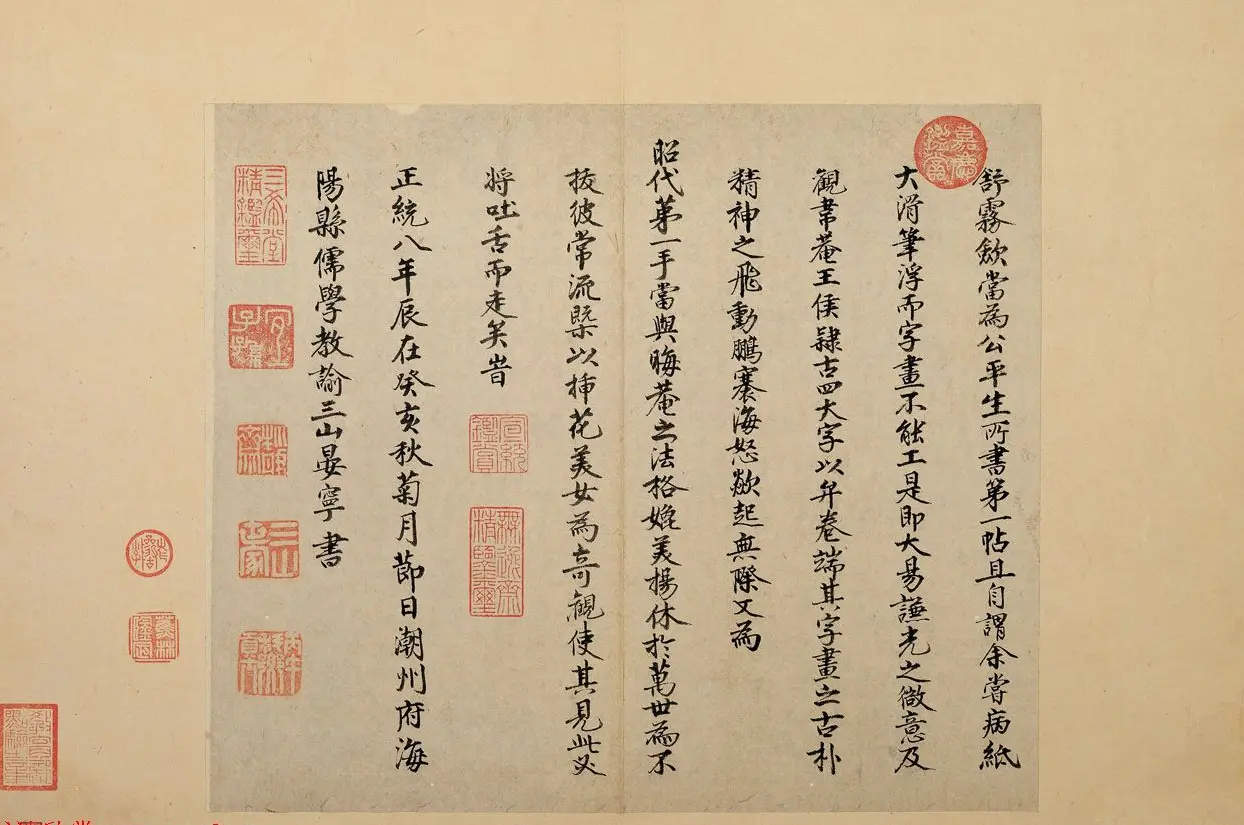 舒霧斂當為公平生所書第一帖且自謂余嘗病紙
大滑筆浮而字畫不能工是即大易謙光之微意及
觀韋菴王侯隸古四大字以弁卷端其字畫之古朴
精神之飛動鵬騫海怒欻起無際又為
昭代第一手當與晦菴之法格媲美揚休於萬世為不
拔彼常流槩以揷花美女為奇觀使其見此必
將吐舌而走矣旹
正統八年辰在癸亥秋菊月節日潮州府海
陽縣儒學教諭三山晏寧書
嘉慶鑑賞
宣統鑑賞
無逸齋精鑒璽
三希堂精鑑璽
宜子孫
三山世家